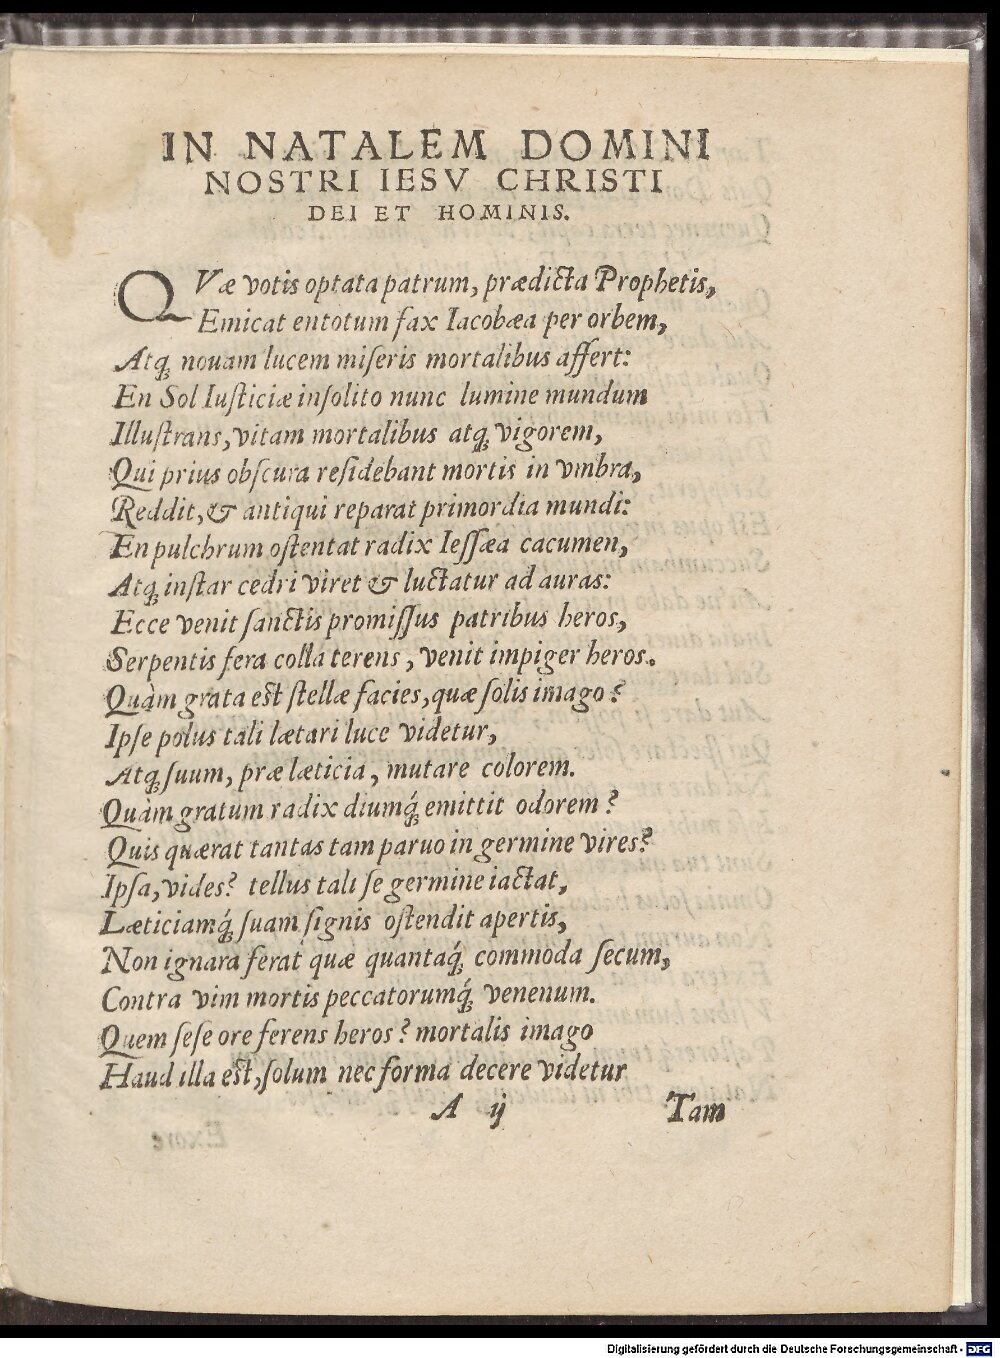 IN NATALEM DOMINI
NOSTRI IESV CHRISTI
DEI ET HOMINIS.
QVæ votis optata patrum, prædicta Prophetis,
Emicat en totum fax Iacobæa per orbem,
Atq́; nouam lucem miſeris mortalibus affert:
En Sol Iuſticiæ inſolito nunc lumine mundum
Illuſtrans, vitam mortalibus atq́; vigorem,
Qui prius obſcura reſidebant mortis in vmbra,
Reddit, & antiqui reparat primordia mundi:
En pulchrum oſtentat radix Ieſſæa cacumen,
Atq́; inſtar cedri viret & luctatur ad auras:
Ecce venit ſanctis promiſſus patribus heros,
Serpentis fera colla terens, venit impiger heros.
Quàm grata eſt ſtellæ facies, quæ ſolis imago?
Ipſe polus tali lætari luce videtur,
Atq́; ſuum, præ læticia, mutare colorem.
Quàm gratum radix diumq́; emittit odorem?
Quis quærat tantas tam paruo in germine vires?
Ipſa, vides? tellus tali ſe germine iactat,
Læticiamq́; ſuam ſignis oſtendit apertis,
Non ignara ferat quæ quantaq́; commoda ſecum,
Contra vim mortis peccatorumq́; venenum.
Quem ſeſe ore ferens heros? mortalis imago
Haud illa eſt, ſolum nec forma decere videtur
A ij Tam
Digitalisierung gefördert durch die Deutsche Forschungsgemeinschaft - DFG